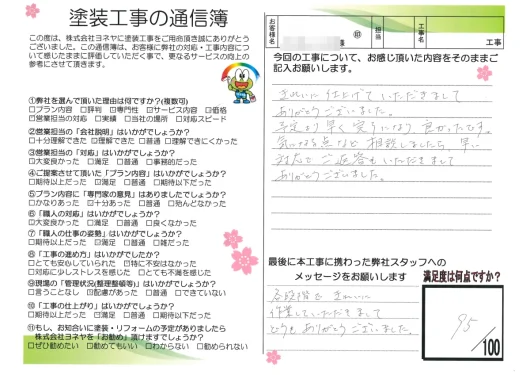 塗装工事の通信簿
この度は、株式会社ヨネヤに塗装工事をご用命頂き誠にありがとう
ございました。この通信簿は、お客様に弊社の対応・工事内容につい
て感じたままに評価していただく事で、更なるサービスの向上の
参考にさせて頂きます。
①弊社を選んで頂いた理由は何ですか?(複数可)
□プラン内容 □評判 □専門性 ☑サービス内容 □価格
□営業担当の対応 □実績 □当社の場所 □対応スピード
②営業担当の「会社説明」はいかがでしょうか?
□十分理解できた ☑理解できた □普通 □理解できにくかった
③営業担当の「対応」はいかがでしょうか?
□大変良かった □満足 □普通 □事務的だった
④ご提案させて頂いた「プラン内容」はいかがでしょうか?
□期待以上だった ☑満足 □普通 □期待以下だった
⑤プラン内容に「専門家の意見」はありましたでしょうか?
□かなりあった ☑十分あった □普通 □殆んどなかった
⑥「職人の対応」はいかがでしょうか?
□大変良かった ☑満足 □普通 □良くなかった
⑦「職人の仕事の姿勢」はいかがでしょうか?
□期待以上だった ☑満足 □普通 □雑だった
⑧「工事の進め方」はいかがでしたか?
□とても安心していられた ☑特に不安はなかった
□対応に少しストレスを感じた □とても不満を感じた
⑨現場の「管理状況(整理整頓等)」はいかがでしょうか?
□言うことなし ☑配慮があった □普通 □できていない
⑩「工事の仕上がり」はいかがでしょうか?
□期待以上だった ☑満足 □普通 □期待以下だった
⑪もし、お知合いに塗装・リフォームの予定がありましたら
株式会社ヨネヤを「お勧め」頂けますでしょうか?
□ぜひ勧めたい □勧めてもいい □わからない □勧められない
お客様名
様
担当
工事名
工事
今回の工事について、お感じ頂いた内容をそのままご
記入お願いします。
きれいに仕上げていただきまして
ありがとうございました。
予定より早く完了になり、良かったです。
気になる点など相談しましたら、早い
対応でご返答もいただきまして
ありがとうございました。
最後に本工事に携わった弊社スタッフへの
メッセージをお願いします
各段階できれいに
作業していただきまして
どうもありがとうございました。
満足度は何点ですか?
95
/100